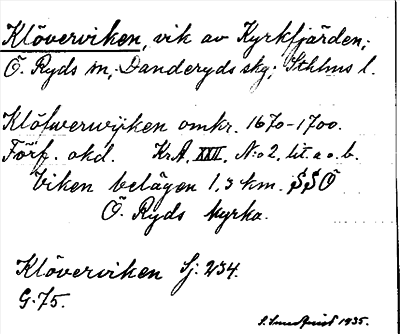 Klöverviken, vik av Kyrkfjärden;
Ö. Ryds sn; Danderyds skg; Sthlms l.
Klöfwerwijken omkr. 1670-1700.
Förf. okd. KrA, XXII, No 2, lit. a o. b.
Viken belägen 1,3 km. SSÖ
Ö. Ryds kyrka.
Klöverviken Sj. 234.
G. 75.
S. Sundquist 1935.